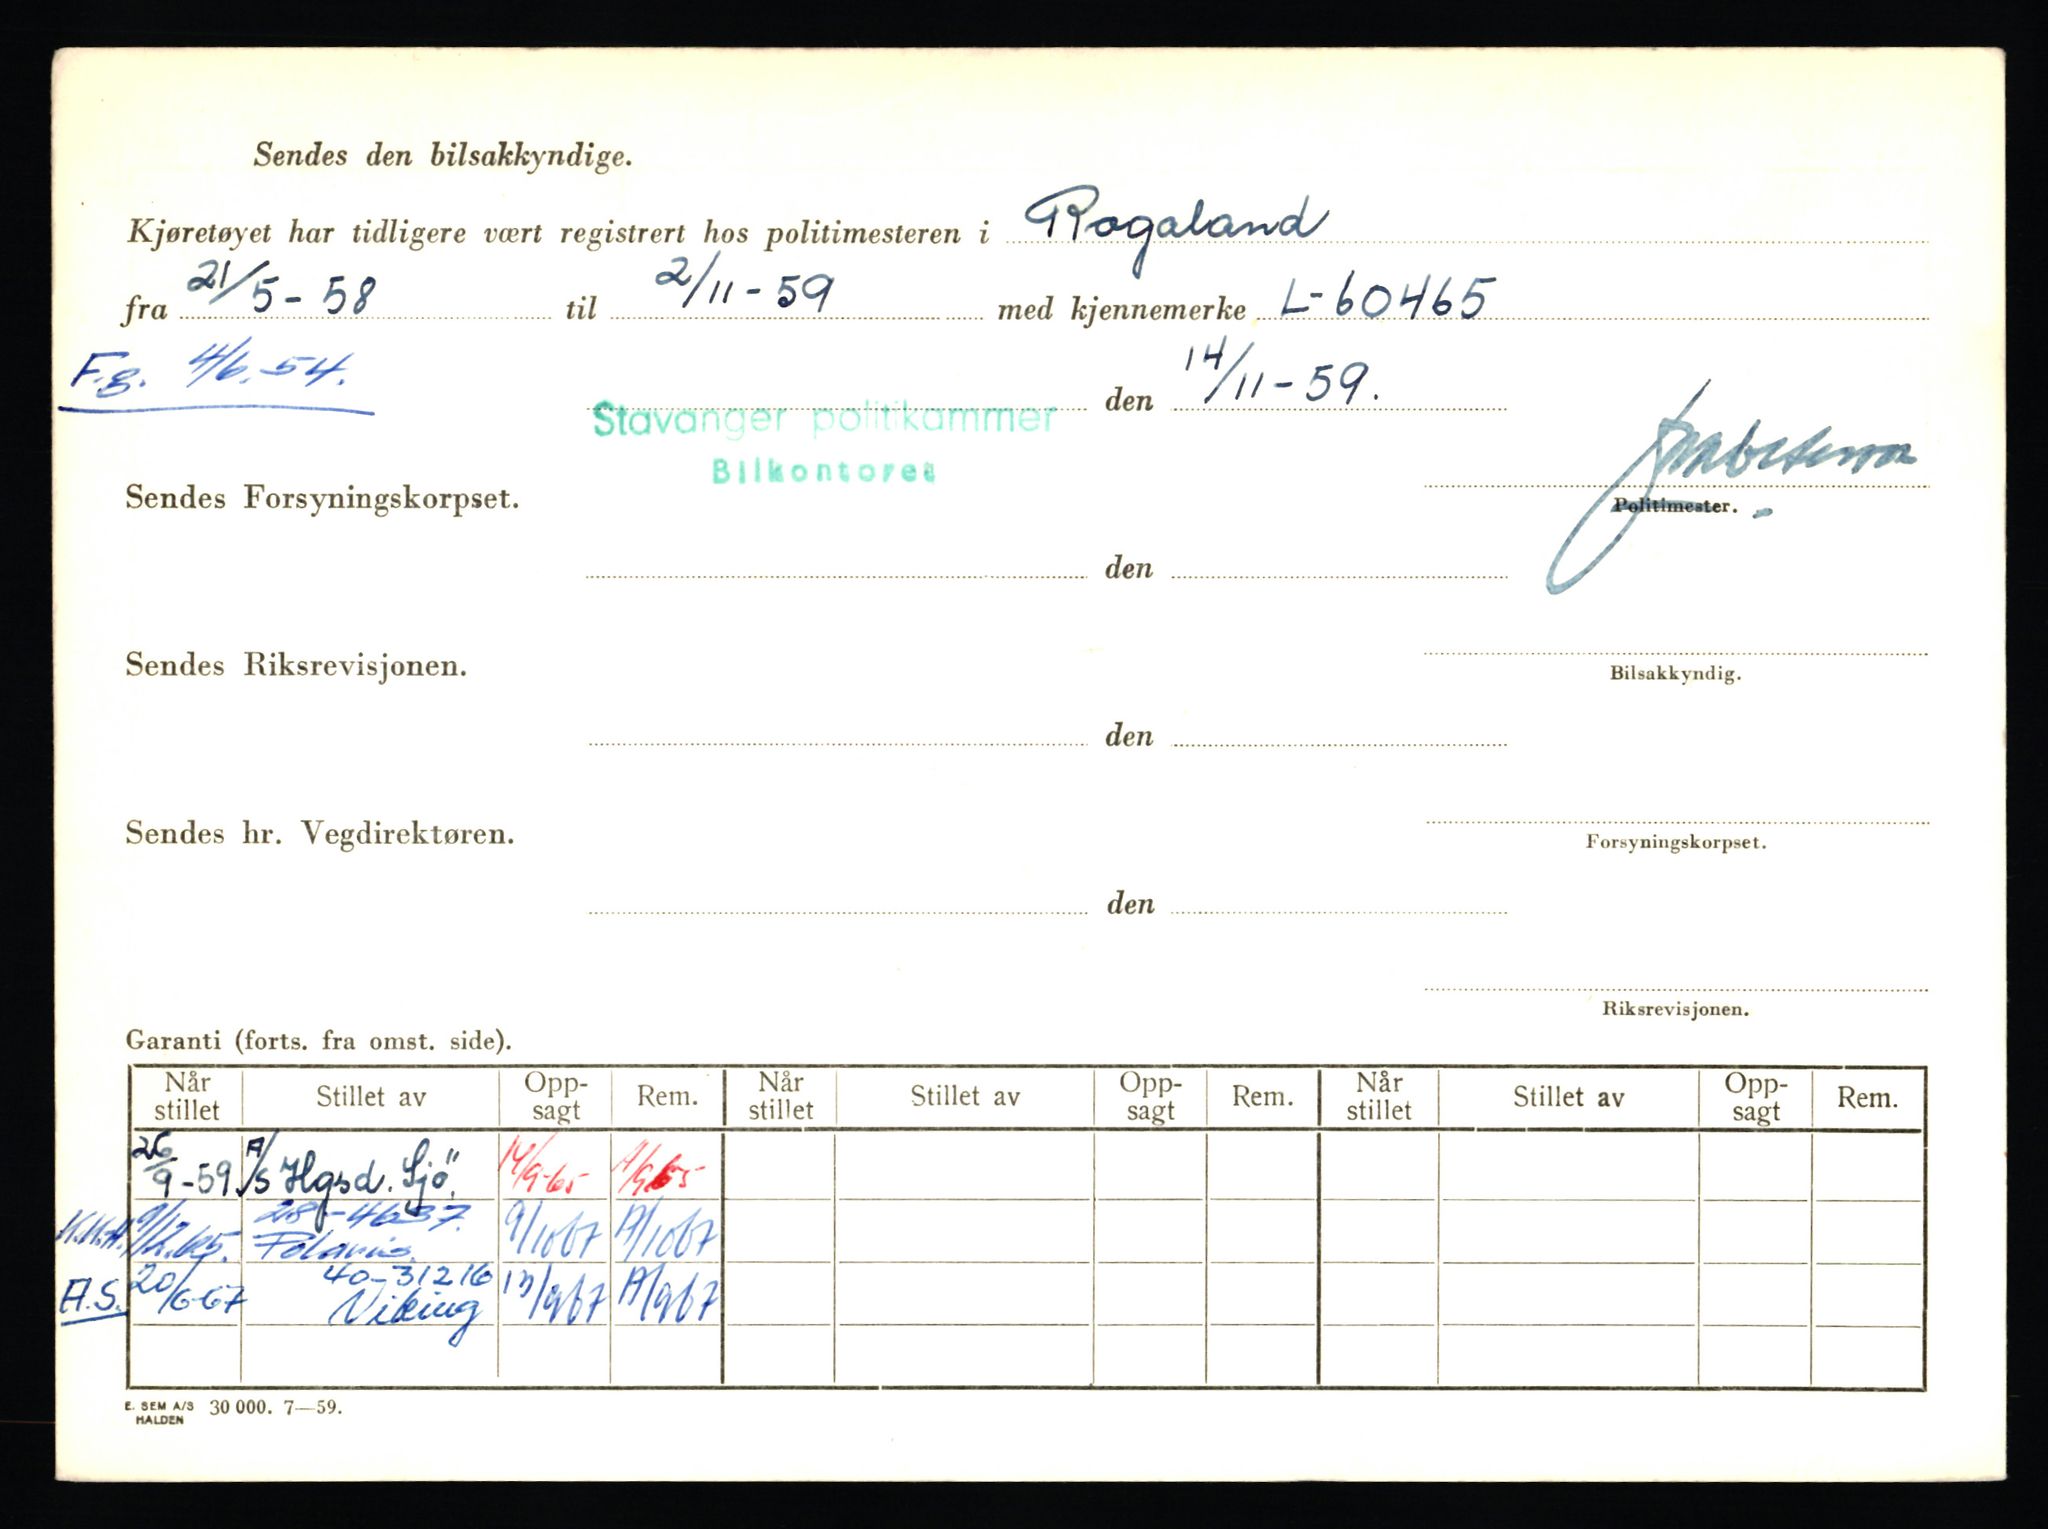 Sendes den bilsakkyndige.
Kjøretøyet har tidligere vært registrert hos politimesteren i Rogaland
fra 21/5 - 58 til 2/11 - 59 med kjennemerke L-60465
F.g. 4/6.54.
Stavanger politikammer den 14/11 - 59.
Bilkontoret
Sendes Forsyningskorpset.
Politimester.
den
Sendes Riksrevisjonen.
Bilsakkyndig.
den
Sendes hr. Vegdirektøren.
Forsyningskorpset.
den
Riksrevisjonen.
Garanti (forts. fra omst. side).
Når stillet Stillet av Opp-sagt Rem. Når stillet Stillet av Opp-sagt Rem. Når stillet Stillet av Opp-sagt Rem.
26/9-59 A/S Hgsd. Sjö 14/9-65
28-4637.
9/12.65. Polaris. 9/1067 A/1067
40-31216
A.S. 20/6-67 Viking 13/967 A/967
E. SEM A/S HALDEN 30 000. 7—59.